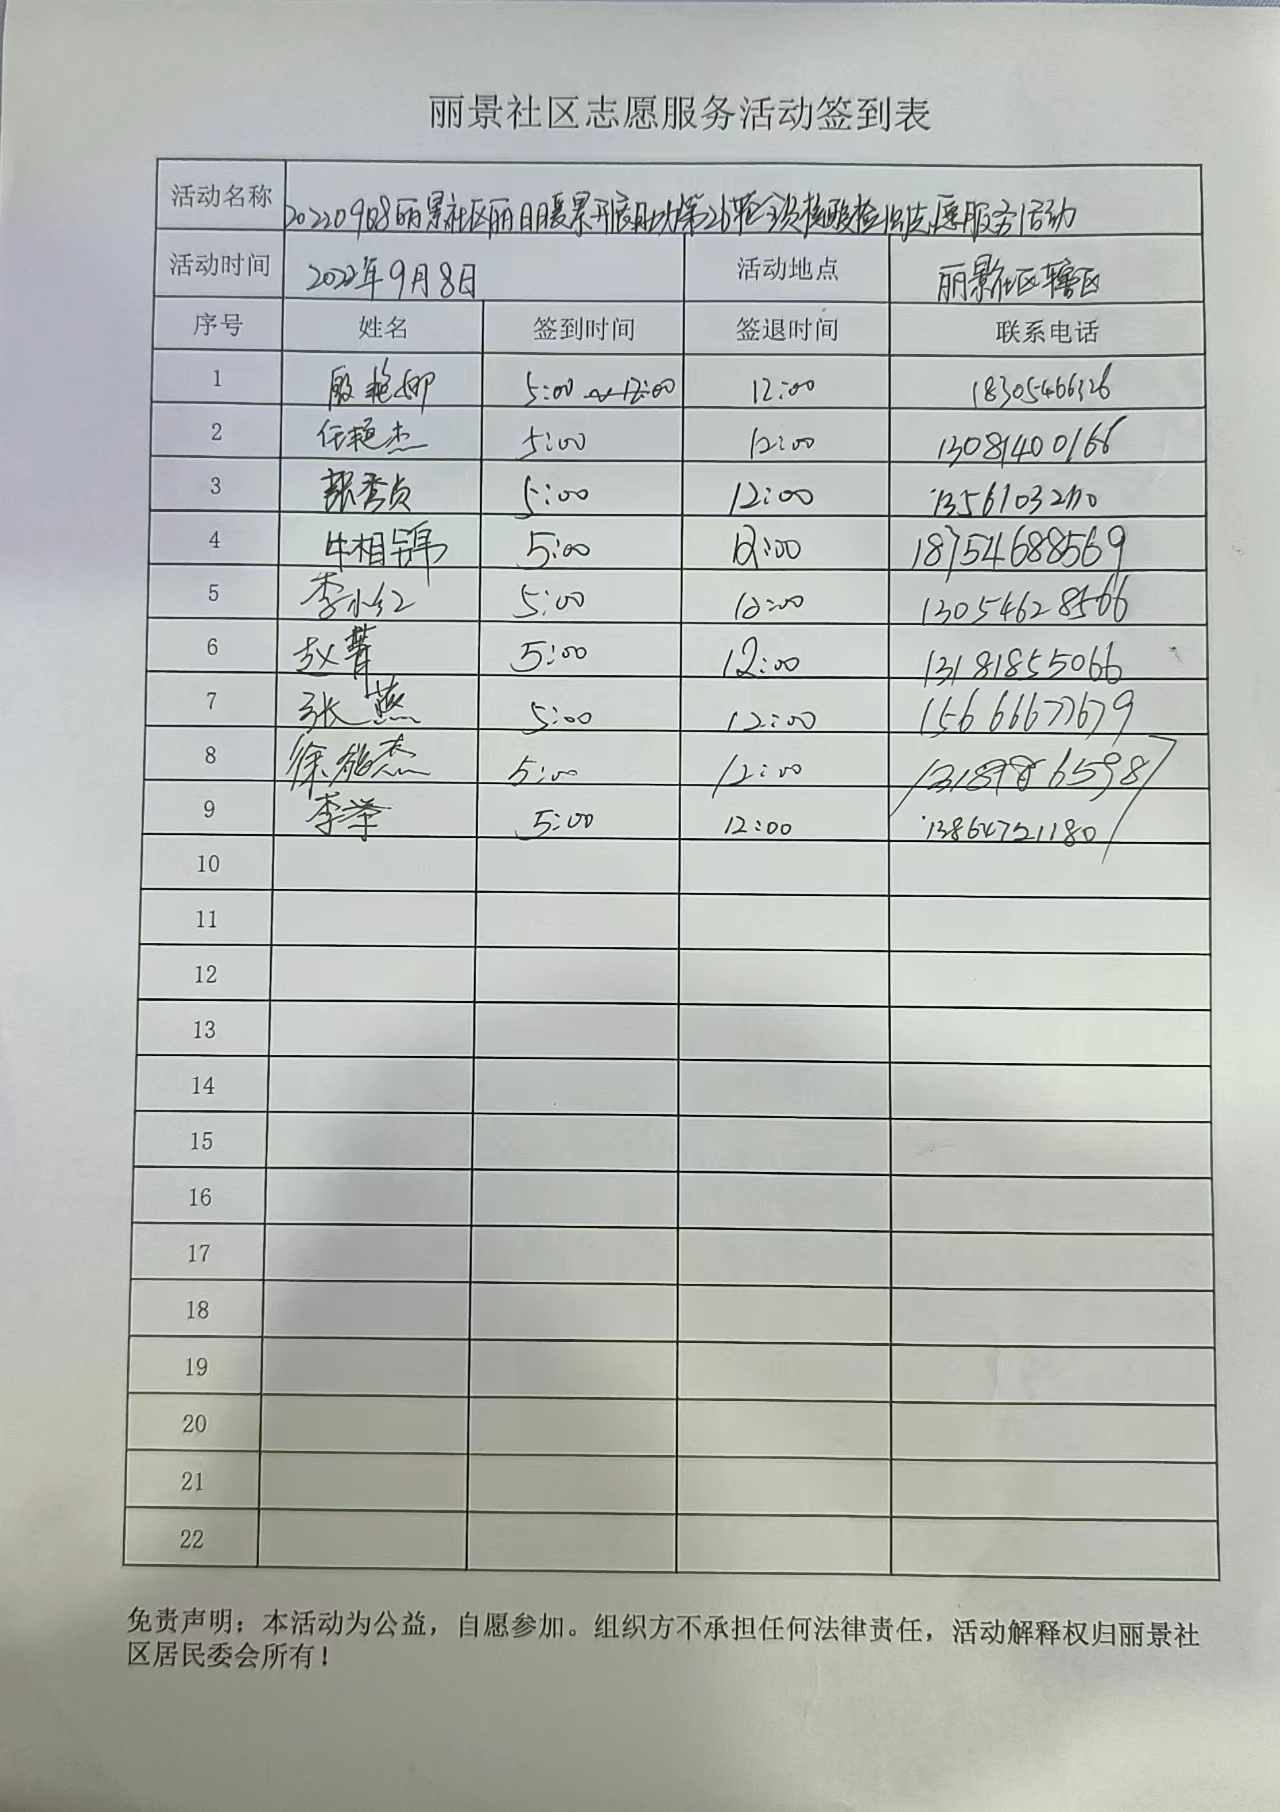 丽景社区志愿服务活动签到表
活动名称 20220908丽景社区丽日暖景开展助力第26轮全员核酸检测志愿服务活动
活动时间 2022年9月8日 活动地点 丽景社区辖区
序号 姓名 签到时间 签退时间 联系电话
1 殷艳娜 5:00 12:00 18305466326
2 任艳杰 5:00 12:00 13081400166
3 5:00 12:00
4 牛相锦 5:00 12:00 18754688569
5 李小红 5:00 12:00 13054628566
6 赵菁 5:00 12:00 13181855066
7 张燕 5:00 12:00 15666677679
8 5:00 12:00
9 李举 5:00 12:00 13864721180
10
11
12
13
14
15
16
17
18
19
20
21
22
免责声明：本活动为公益，自愿参加。组织方不承担任何法律责任，活动解释权归丽景社
区居民委会所有！